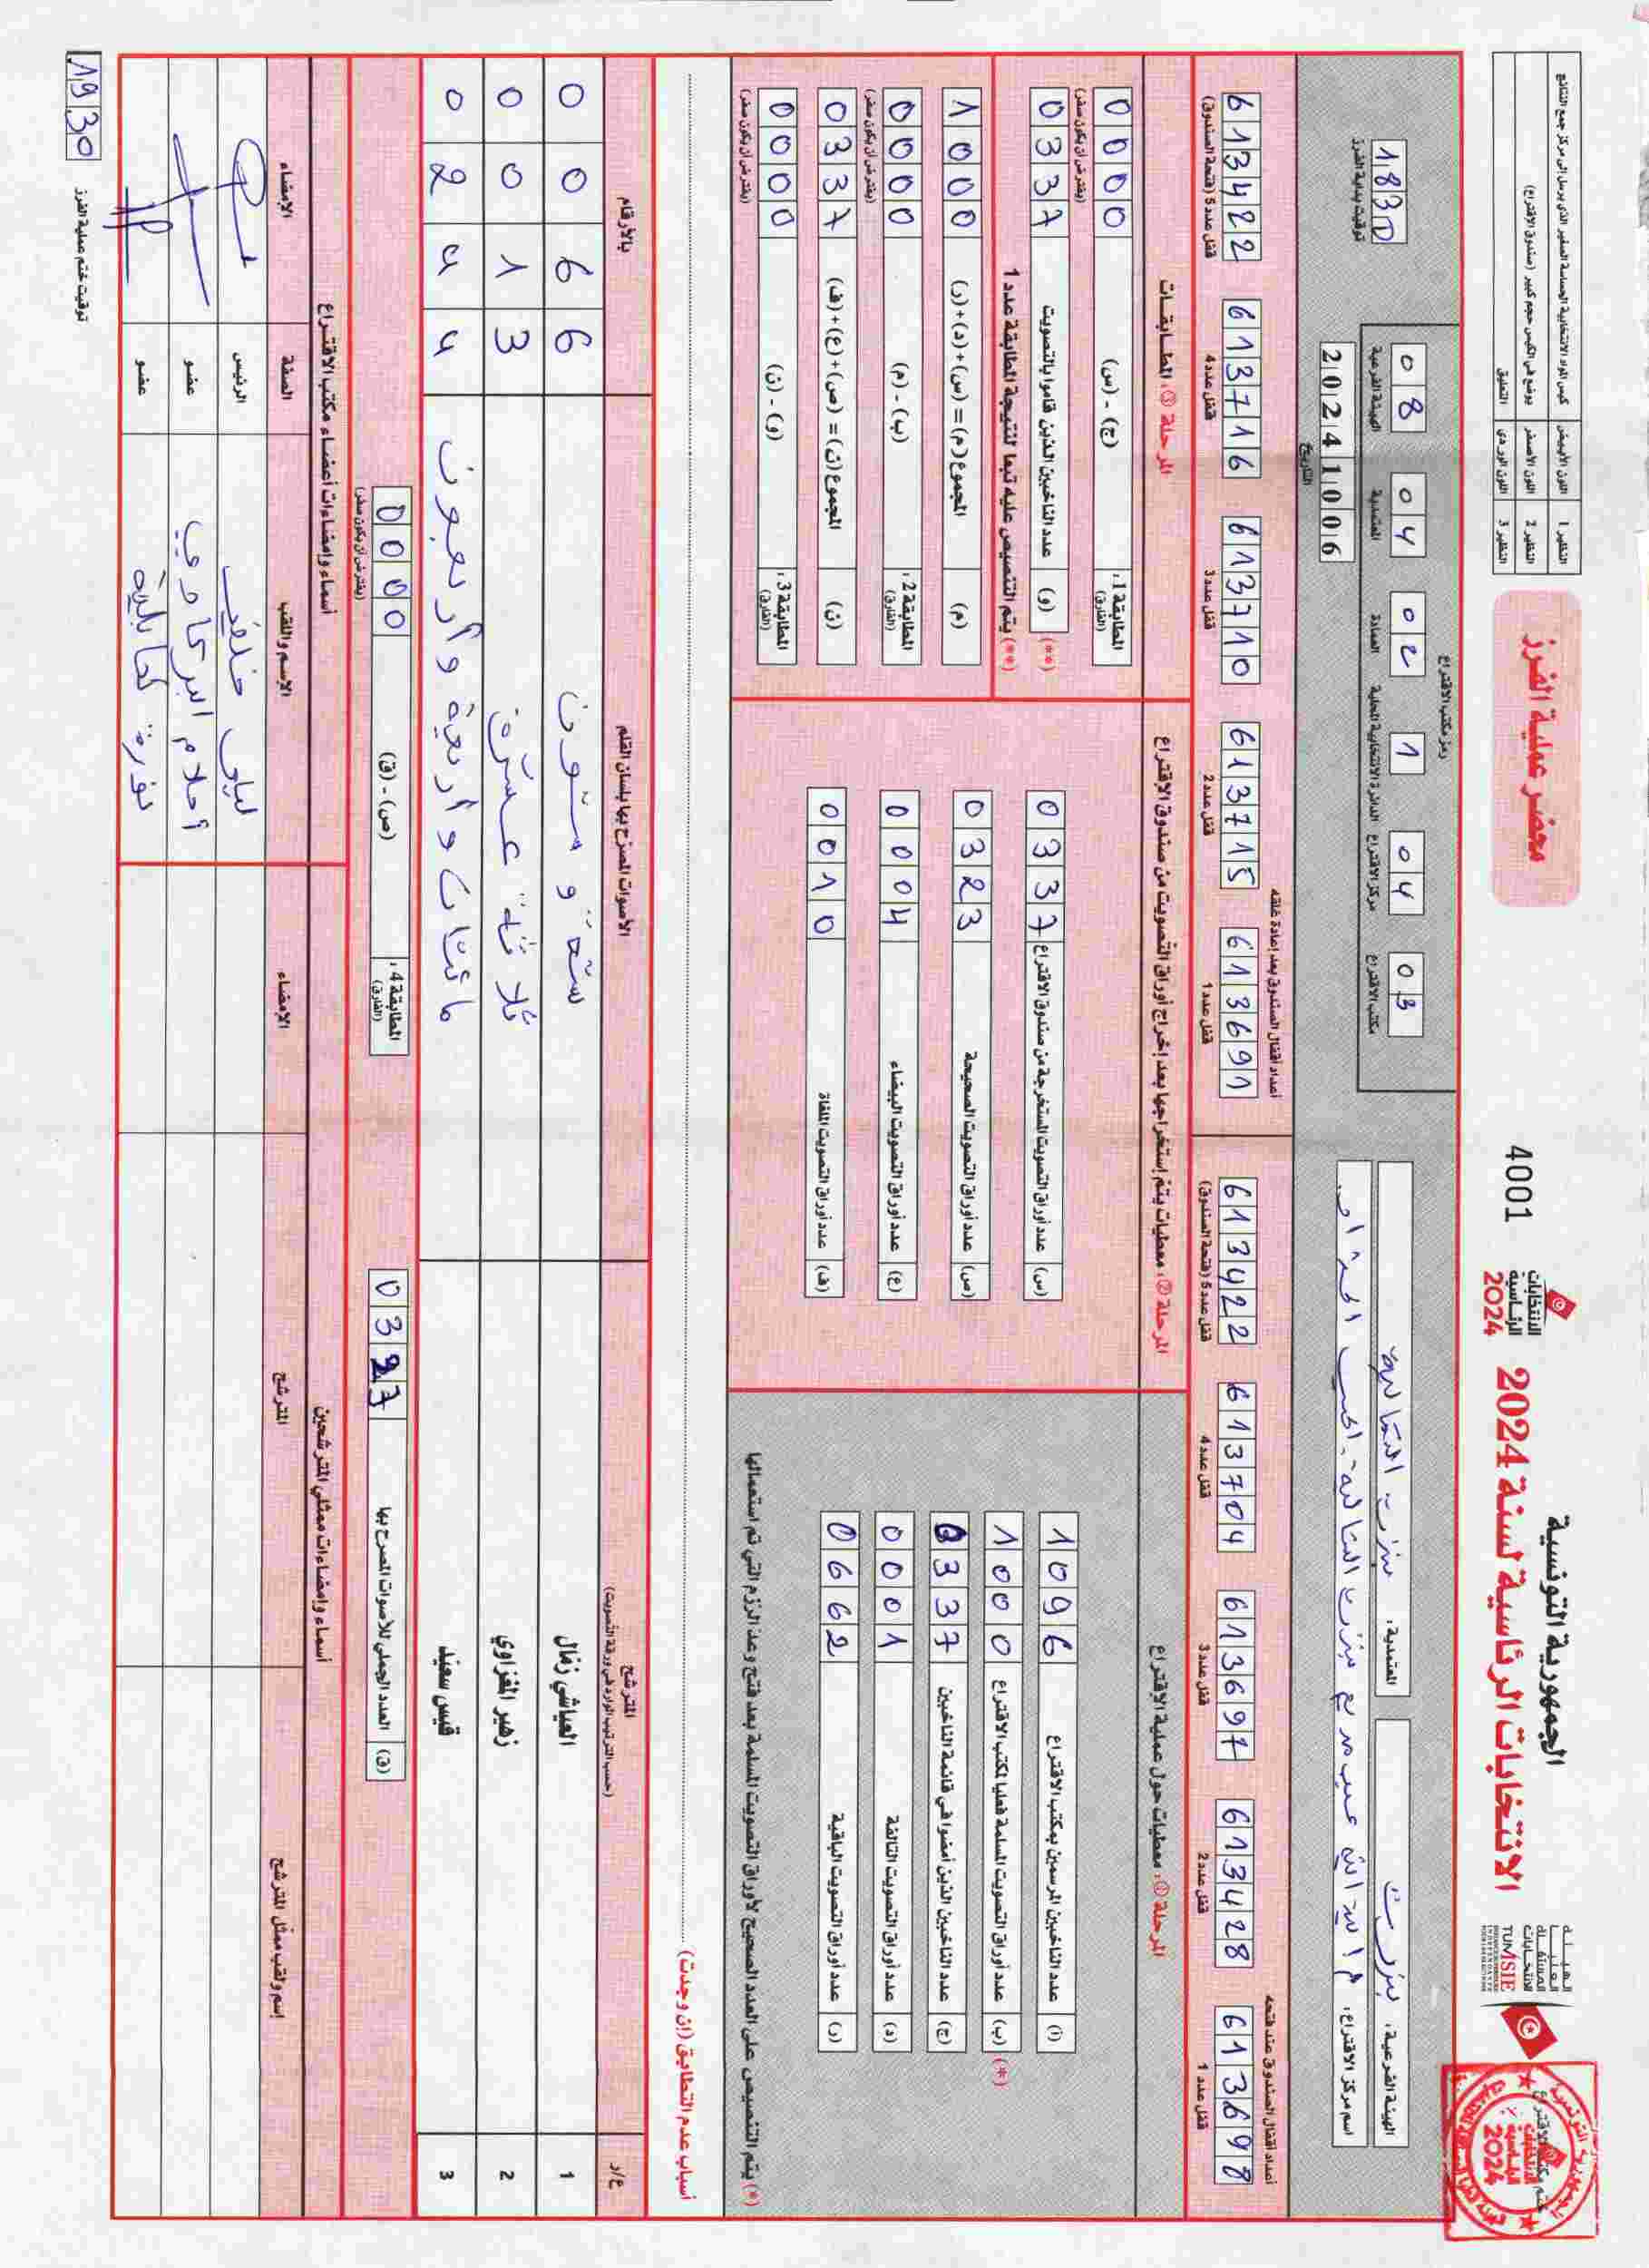 الجمهورية التونسية
الانتخابات الرئاسية لسنة 2024
الانتخابات
الرئاسية
2024
4001
محضر عملية الفرز
النظير 1 اللون الأبيض كيس المواد الانتخابية الحساسة الصغير الذي يرسل إلى مركز جمع النتائج
النظير 2 اللون الأصفر يوضع في الكيس حجم كبير (صندوق الاقتراع)
النظير 3 اللون الوردي التعليق
الهيئة الفرعية: بنزرت
المعتمدية: بنزرت
اسم مركز الاقتراع:
رمز مكتب الاقتراع
08 الهيئة الفرعية
04 المعتمدية
02 العمادة
1 الدائرة الانتخابية المحلية
04 مركز الاقتراع
03 مكتب الاقتراع
20241006
التاريخ
1830
توقيت بداية الفرز
أعداد أقفال الصندوق عند فتحه
613698 قفل عدد 1
613428 قفل عدد 2
613697 قفل عدد 3
613704 قفل عدد 4
613422 قفل عدد 5 (فتحة الصندوق)
أعداد أقفال الصندوق بعد إعادة غلقه
613691 قفل عدد 1
613715 قفل عدد 2
613710 قفل عدد 3
613716 قفل عدد 4
613422 قفل عدد 5 (فتحة الصندوق)
المرحلة ①: معطيات حول عملية الاقتراع
(أ) عدد الناخبين المرسمين بمكتب الاقتراع 1096
(ب) عدد أوراق التصويت المسلمة فعليا لمكتب الاقتراع 1000 (*)
(ج) عدد الناخبين الذين أمضوا في قائمة الناخبين 0337
(د) عدد أوراق التصويت التالفة 0001
(ر) عدد أوراق التصويت الباقية 0662
(*) يتم التنصيص على العدد الصحيح لأوراق التصويت المسلمة بعد فتح وعد الرزم التي تم استعمالها
المرحلة ②: معطيات يتم إستخراجها بعد إخراج أوراق التصويت من صندوق الاقتراع
(س) عدد أوراق التصويت المستخرجة من صندوق الاقتراع 0337
(ص) عدد أوراق التصويت الصحيحة 0323
(ع) عدد أوراق التصويت البيضاء 0004
(ف) عدد أوراق التصويت الملغاة 0010
المرحلة ③: المطابقات
المطابقة 1: (الفارق) (ج) - (س) 0000
(يفترض أن يكون صفر)
(**) (و) عدد الناخبين الذين قاموا بالتصويت 0337
(**) يتم التنصيص عليه تبعا لنتيجة المطابقة عدد 1
(م) المجموع (م) = (س)+(د)+(ر) 1000
المطابقة 2: (الفارق) (ب) - (م) 0000
(يفترض أن يكون صفر)
(ن) المجموع (ن) = (ص)+(ع)+(ف) 0337
المطابقة 3: (الفارق) (و) - (ن) 0000
(يفترض أن يكون صفر)
أسباب عدم التطابق (إن وجدت)
ع/ر المترشح (حسب الترتيب الوارد في ورقة التصويت) الأصوات المصرّح بها بلسان القلم بالأرقام
1 العياشي زمّال ستة و ستون 0066
2 زهير المغزاوي ثلاثة عشرة 0013
3 قيس سعيّد مائتان و أربعة و أربعون 0244
(ق) العدد الجملي للأصوات المصرح بها
المطابقة 4: (الفارق) (ص) - (ق) 0000
(يفترض أن يكون صفر)
أسماء وإمضاءات ممثلي المترشحين
إسم ولقب ممثل المترشح المترشح الإمضاء
أسماء وإمضاءات أعضاء مكتب الاقتراع
الإسم واللقب الصفة الإمضاء
ليلى الرئيس
أحلام عضو
نورة عضو
1930
توقيت ختم عملية الفرز